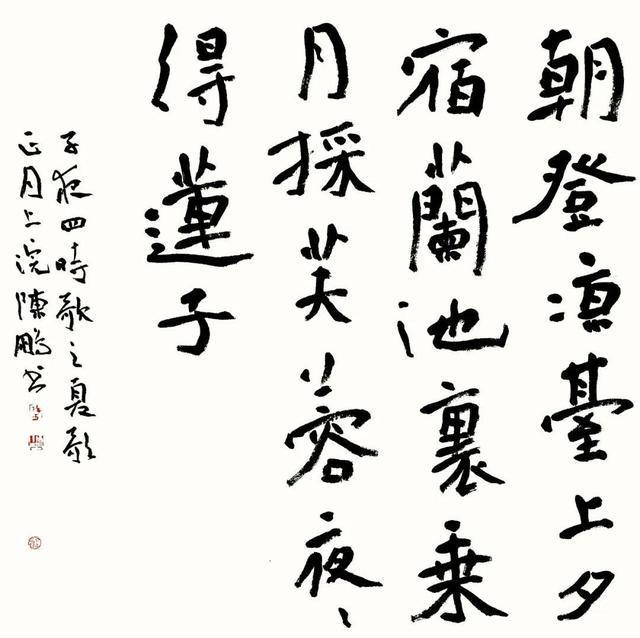 朝登凉臺上夕
宿蘭池裏乗
月採芙蓉夜〻
得蓮子
子夜四時歌之夏歌
正月上浣陳鵬书